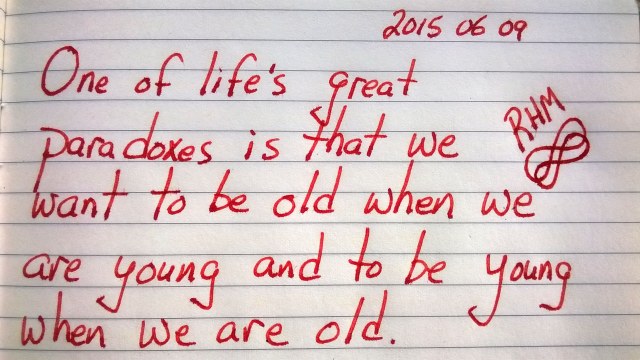 2015 06 09
One of life's great
RHM
paradoxes is that we
want to be old when we
are young and to be young
when we are old.